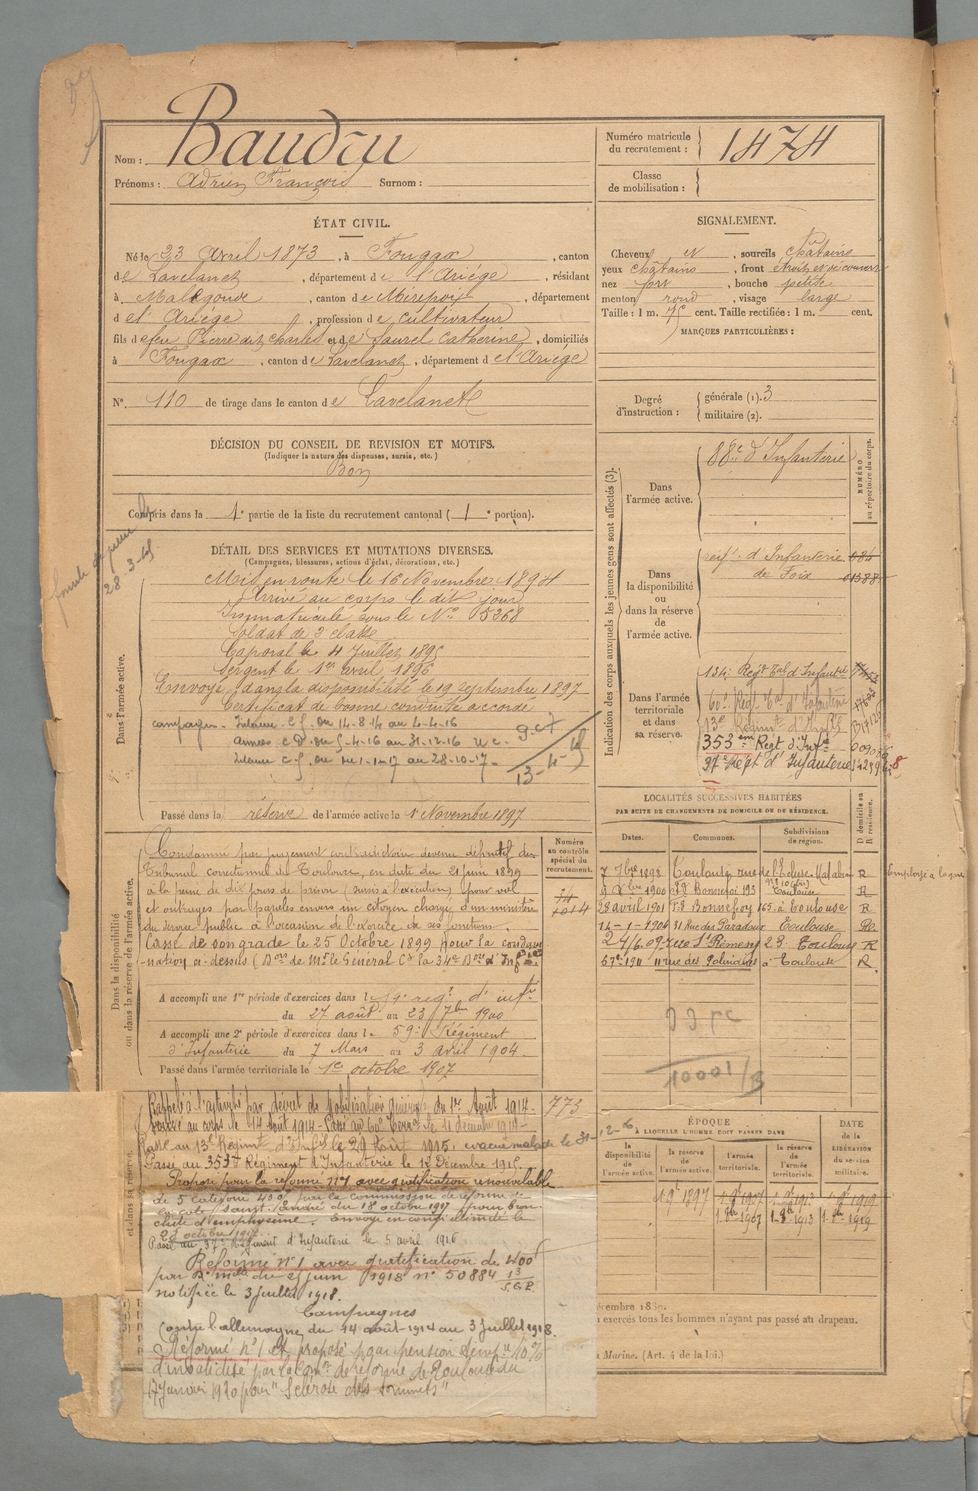 Nom : Baudru
Prénoms : Adrien François Surnom :
Numéro matricule du recrutement : 1474
Classe de mobilisation :
ÉTAT CIVIL.
Né le 23 Avril 1873, à Fougax, canton
de Lavelanet, département de l'Ariége, résidant
à Malegoude, canton de Mirepoix, département
de l'Ariége, profession de cultivateur
fils de feu Pierre dit Charles et de Laurel Catherine, domiciliés
à Fougax, canton de Lavelanet, département de l'Ariége
N° 110 de tirage dans le canton de Lavelanet
SIGNALEMENT.
Cheveux et, sourcils châtains
yeux châtains, front étroit et découvert
nez fort, bouche petite
menton rond, visage large
Taille : 1 m. 75 cent. Taille rectifiée : 1 m. cent.
MARQUES PARTICULIÈRES :
DÉCISION DU CONSEIL DE REVISION ET MOTIFS.
(Indiquer la nature des dispenses, sursis, etc.)
Bon
Compris dans la 1e partie de la liste du recrutement cantonal ( 1e portion).
Degré d'instruction : générale (1). 3
militaire (2).
DÉTAIL DES SERVICES ET MUTATIONS DIVERSES.
(Campagnes, blessures, actions d'éclat, décorations, etc.)
Dans l'armée active.
Mis en route le 16 Novembre 1894
Arrivé au corps le dit jour
Immatriculé sous le N° 5368
Soldat de 2 classe
Caporal le 4 Juillet 1895
Sergent le 1er avril 1896
Envoyé dans la disponibilité le 19 septembre 1897
Certificat de bonne conduite accordé
campagnes - Intérieur C.S. du 14-8-14 au 4-4-16
Armées C.D. du 5-4-16 au 31-12-16
Intérieur C.S. du 1-1-17 au 28-10-17
13-4-
28-3-
Passé dans la réserve de l'armée active le 1er Novembre 1897
Indication des corps auxquels les jeunes gens sont affectés (3).
NUMÉRO au répertoire du corps.
Dans l'armée active.
88e d'Infanterie
Dans la disponibilité ou dans la réserve de l'armée active.
d'Infanterie 084
de Foix
Dans l'armée territoriale et dans sa réserve.
134e Regt Tal d'Infanterie
60e Régt Tal d'Infanterie
13e Régiment d'Infie
353 ème Regt d'Infie
37e Regt d'Infanterie
LOCALITÉS SUCCESSIVES HABITÉES
PAR SUITE DE CHANGEMENTS DE DOMICILE OU DE RÉSIDENCE.
Dates. Communes. Subdivisions de région. D domicile ou R résidence.
7 9bre 1898 Toulouse, rue R
9 1900 Bonnefoi 193 Toulouse R
28 avril 1901 F.g Bonnefoy 165 à Toulouse R
14-1-1904 31 Rue des Paradoux Toulouse
24/6.09 rue St Rémesy 23 Toulouse R
1911 11 rue des Polinaires à Toulouse R.
Dans la disponibilité ou dans la réserve de l'armée active.
Numéro au contrôle spécial du recrutement.
1014
Condamné par jugement contradictoire devenu définitif du
Tribunal correctionnel de Toulouse, en date du 21 juin 1899
à la peine de dix jours de prison (sursis à l'exécution) pour vol
et outrages par paroles envers un citoyen chargé d'un ministère
du service public à l'occasion de l'exercice de ses fonctions.
Cassé de son grade le 25 Octobre 1899 pour la condam-
nation ci-dessus (Don de Mr le Général Ct la 34e Don d'Infie)
A accompli une 1re période d'exercices dans le 59e régt d'infie
du 27 août au 23 7bre 1900
A accompli une 2e période d'exercices dans le 59e Régiment
d'Infanterie du 7 Mars au 3 avril 1904.
Passé dans l'armée territoriale le 1er octobre 1907
10001/3
773
Rappelé à l'activité par décret de mobilisation générale du 1er Août 1914 -
Arrivé au corps le 14 Août 1914 - Passé au 60e Terral le 11 décembre 1914 -
Passé au 13e Régiment d'Infie le 29 Août 1915, évacué malade le 31-12-6
Passé au 353e Régiment d'Infanterie le 12 Décembre 1915.
Proposé pour la réforme N°1 avec gratification renouvelable
de 5 catégorie 400f par la commission de réforme de
du 18 octobre 1917 pour bron-
chite d'emphysème. Envoyé en congé illimité le
28 octobre 1917
Passé au 37e Régiment d'Infanterie le 5 avril 1916
Réformé n° 1 avec gratification de 400f
par Don mlle du 21 juin 1918 n° 50884 13
notifiée le 3 juillet 1918.
Campagnes
Contre l'allemagne, du 14 août 1914 au 3 juillet 1918.
Réformé n° 1 et proposé pour pension temp. 10 %
d'invalidité par la Comon de réforme de Toulouse du
17 janvier 1920 pour "Sclérose des sommets"
ÉPOQUE
À LAQUELLE L'HOMME DOIT PASSER DANS
la disponibilité de l'armée active. la réserve de l'armée active. l'armée territoriale. la réserve de l'armée territoriale.
DATE de la LIBÉRATION du service militaire.
1897 1907 1913 1919
1907 1913 1919
écembre 1880.
exercés tous les hommes n'ayant pas passé au drapeau.
Marine. (Art. 4 de la loi.)